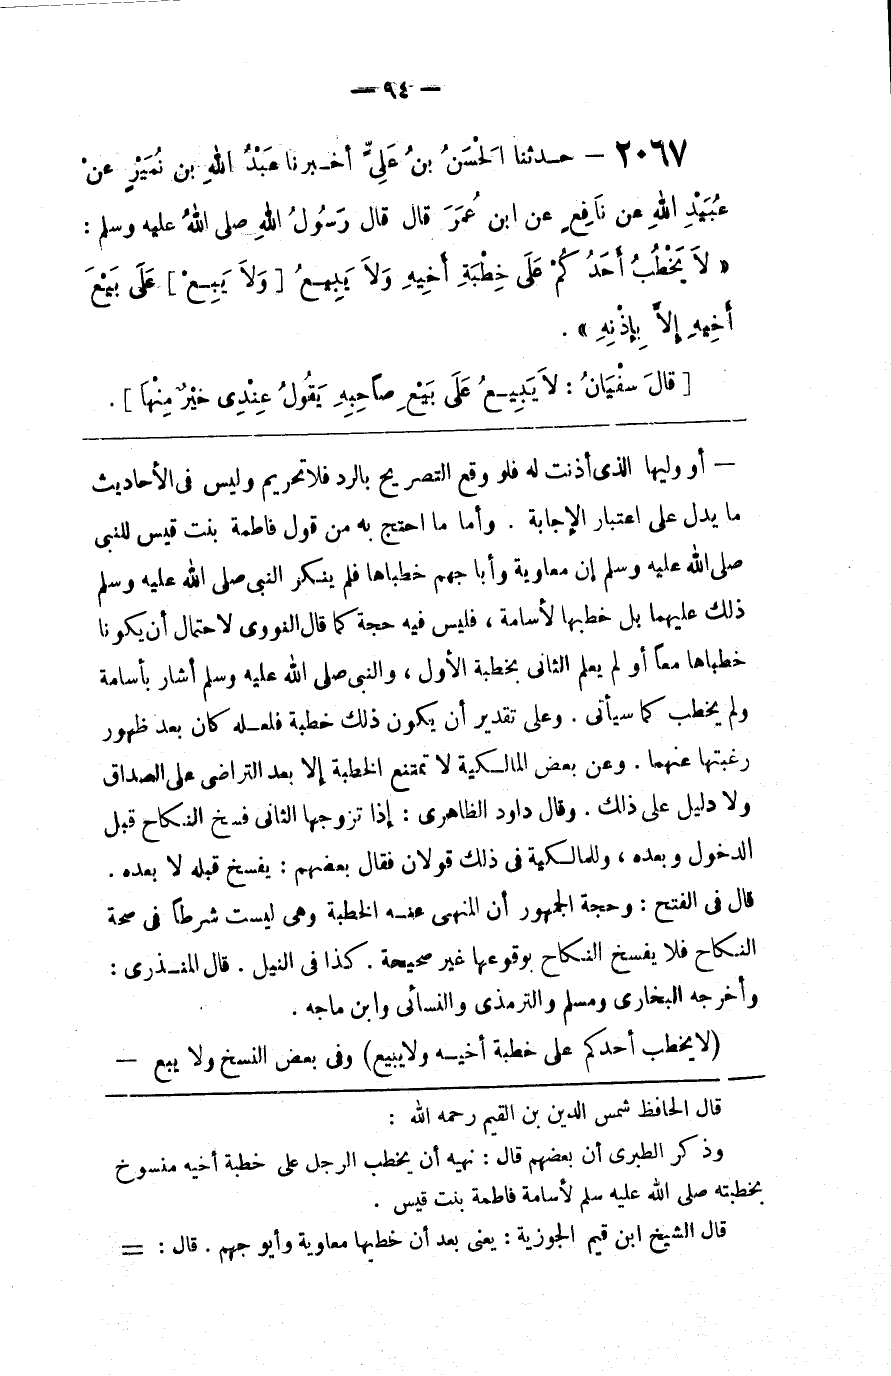 — ٩٤ —
٢٠٦٧ — حـدثنا الْحْسَنُ بنُ عَلِيٍّ أخـبرنا عَبْدُ اللهِ بن نُمَيْرٍ عنْ
عُبَيْدِ اللهِ عن نَافِعٍ عن ابن عُمَرَ قال قال رَسُولُ اللهِ صلى اللهُ عليه وسلم :
« لاَ يَخْطُبُ أَحَدُ كُمْ عَلَى خِطْبَةِ أَخِيهِ وَلاَ يَبِيـعُ [ وَلاَ يَبِـعْ ] عَلَى بَيْعَ
أَخِيهِ إِلاَّ بِإِذْنِهِ » .
[ قالَ سفْيَانُ : لاَ يَبِيـعُ عَلَى بَيْعِ صاَحِبِهِ يَقُولُ عِنْدِى خَيْرٌ مِنْهَا ] .
— أو وليها الذى أذنت له فلو وقع التصريح بالرد فلا تحريم وليس فى الأحاديث
ما يدل على اعتبار الإجابة . وأما ما احتج به من قول فاطمة بنت قيس للنبى
صلى الله عليه وسلم إن معاوية وأبا جهم خطباها فلم ينكر النبى صلى الله عليه وسلم
ذلك عليهما بل خطبها لأسامة ، فليس فيه حجة كما قال النووى لاحتمال أن يكونا
خطباها معاً أو لم يعلم الثانى بخطبة الأول ، والنبى صلى الله عليه وسلم أشار بأسامة
ولم يخطب كما سيأتى . وعلى تقدير أن يكون ذلك خطبة فلعـله كان بعد ظهور
رغبتها عنهما . وعن بعض المالـكية لا تمتنع الخطبة إلا بعد التراضى على الصداق
ولا دليل على ذلك . وقال داود الظاهرى : إذا تزوجها الثانى فسخ النكاح قبل
الدخول وبعده ، وللمالـكية فى ذلك قولان فقال بعضهم : يفسخ قبله لا بعده .
قال فى الفتح : وحجة الجمهور أن المنهى عنـه الخطبة وهى ليست شرطاً فى صحة
النـكاح فلا يفسخ النـكاح بوقوعها غير صحيحة . كذا فى النيل . قال المنـذرى :
وأخرجه البخارى ومسلم والترمذى والنسائى وابن ماجه .
(لا يخطب أحدكم على خطبة أخيـه ولا يبيع) وفى بعض النسخ ولا يبع —
قال الحافظ شمس الدين بن القيم رحمه الله :
وذكر الطبرى أن بعضهم قال : نهيه أن يخطب الرجل على خطبة أخيه منسوخ
بخطبته صلى الله عليه سلم لأسامة فاطمة بنت قيس .
قال الشيخ ابن قيم الجوزية : يعنى بعد أن خطبها معاوية وأبو جهم . قال : =